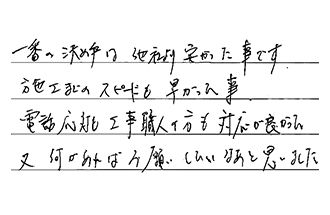 一番の決め手は他社より安かった事です
施工までのスピードも早かった事
電話応対も工事職人の方も対応が良かった
又何かあればお願いしたいなあと思いました